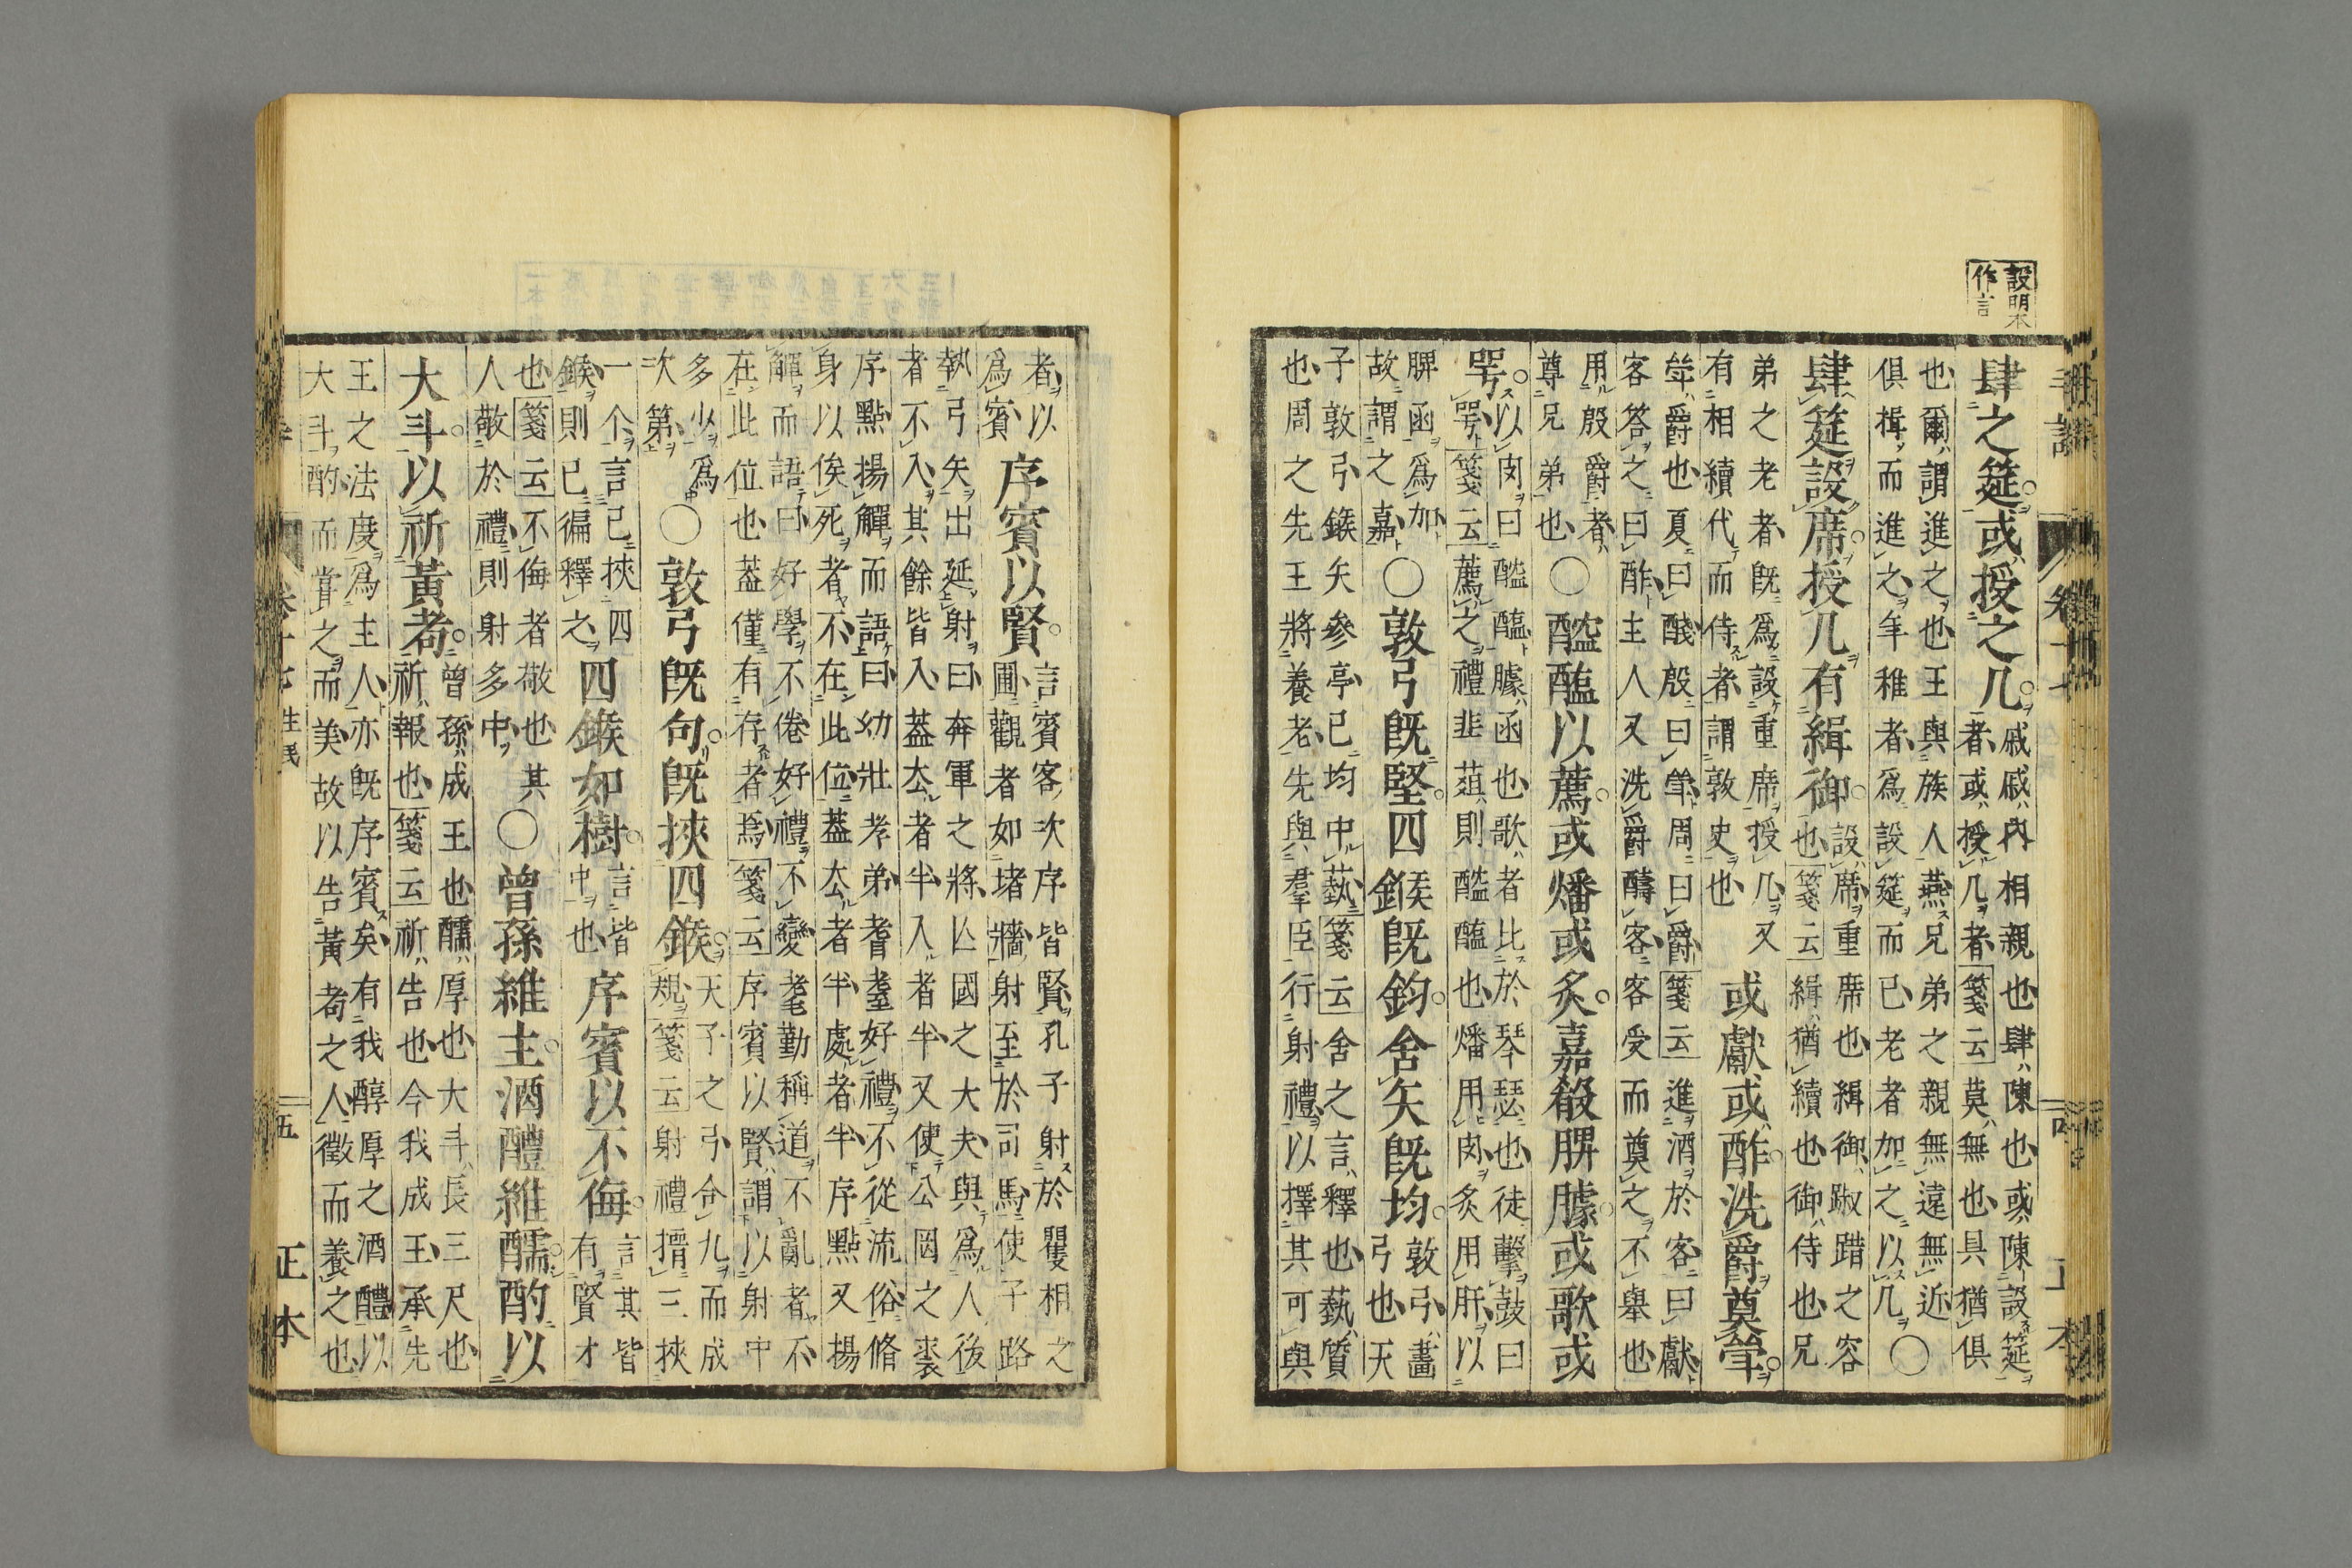 設明本
作言
肆之筵或授之几
戚戚內相親也肆陳也或陳設筵
者或授几者箋云莫無也具猶俱
也爾謂進之也王與族人燕兄弟之親無遠無近
俱揖而進之年稚者爲設筵而已老者加之以几○
肆筵設席授几有緝御
設席重席也緝御踧踖之容
也箋云緝猶續也御侍也兄
弟之老者旣爲設重席授几又
有相續代而侍者謂敦史也
或獻或酢洗爵奠斝
斝爵也夏曰醆殷曰斝周曰爵箋云進酒於客曰獻
客答之曰酢主人又洗爵醻客客受而奠之不舉也
用殷爵者
尊兄弟也
○醓醢以薦或燔或炙嘉殽脾臄或歌或
咢
以肉曰醓醢臄函也歌者比於琴瑟也徒擊鼓曰
咢箋云薦之禮韭菹則醓醢也燔用肉炙用肝以
脾函爲加
故謂之嘉
○敦弓旣堅四鍭旣鈞舍矢旣均
敦弓畫
弓也天
子敦弓鍭矢參亭已均中蓺箋云舍之言釋也蓺質
也周之先王將養老先與羣臣行射禮以擇其可與
者以
爲賓
序賓以賢
言賓客次序皆賢孔子射於矍相之
圃觀者如堵牆射至於司馬使子路
執弓矢出延射曰奔軍之將亾國之大夫與爲人後
者不入其餘皆入蓋去者半入者半又使公罔之裘
序點揚觶而語曰幼壯孝弟耆耋好禮不從流俗脩
身以俟死者不在此位蓋去者半處者半序點又揚
觶而語曰好學不倦好禮不變耄勤稱道不亂者不
在此位也蓋僅有存者焉箋云序賓以賢謂以射中
多少爲
次第
○敦弓旣句旣挾四鍭
天子之弓合九而成
規箋云射禮搢三挾
一个言已挾四
鍭則已徧釋之
四鍭如樹
言皆
中也
序賓以不侮
言其皆
有賢才
也箋云不侮者敬也其
人敬於禮則射多中
○曾孫維主酒醴維醹酌以
大斗以祈黃耇
曾孫成王也醹厚也大斗長三尺也
祈報也箋云祈告也今我成王承先
王之法度爲主人亦旣序賓矣有我醇厚之酒醴以
大斗酌而嘗之而美故以告黃耇之人徵而養之也
生民
五
正本